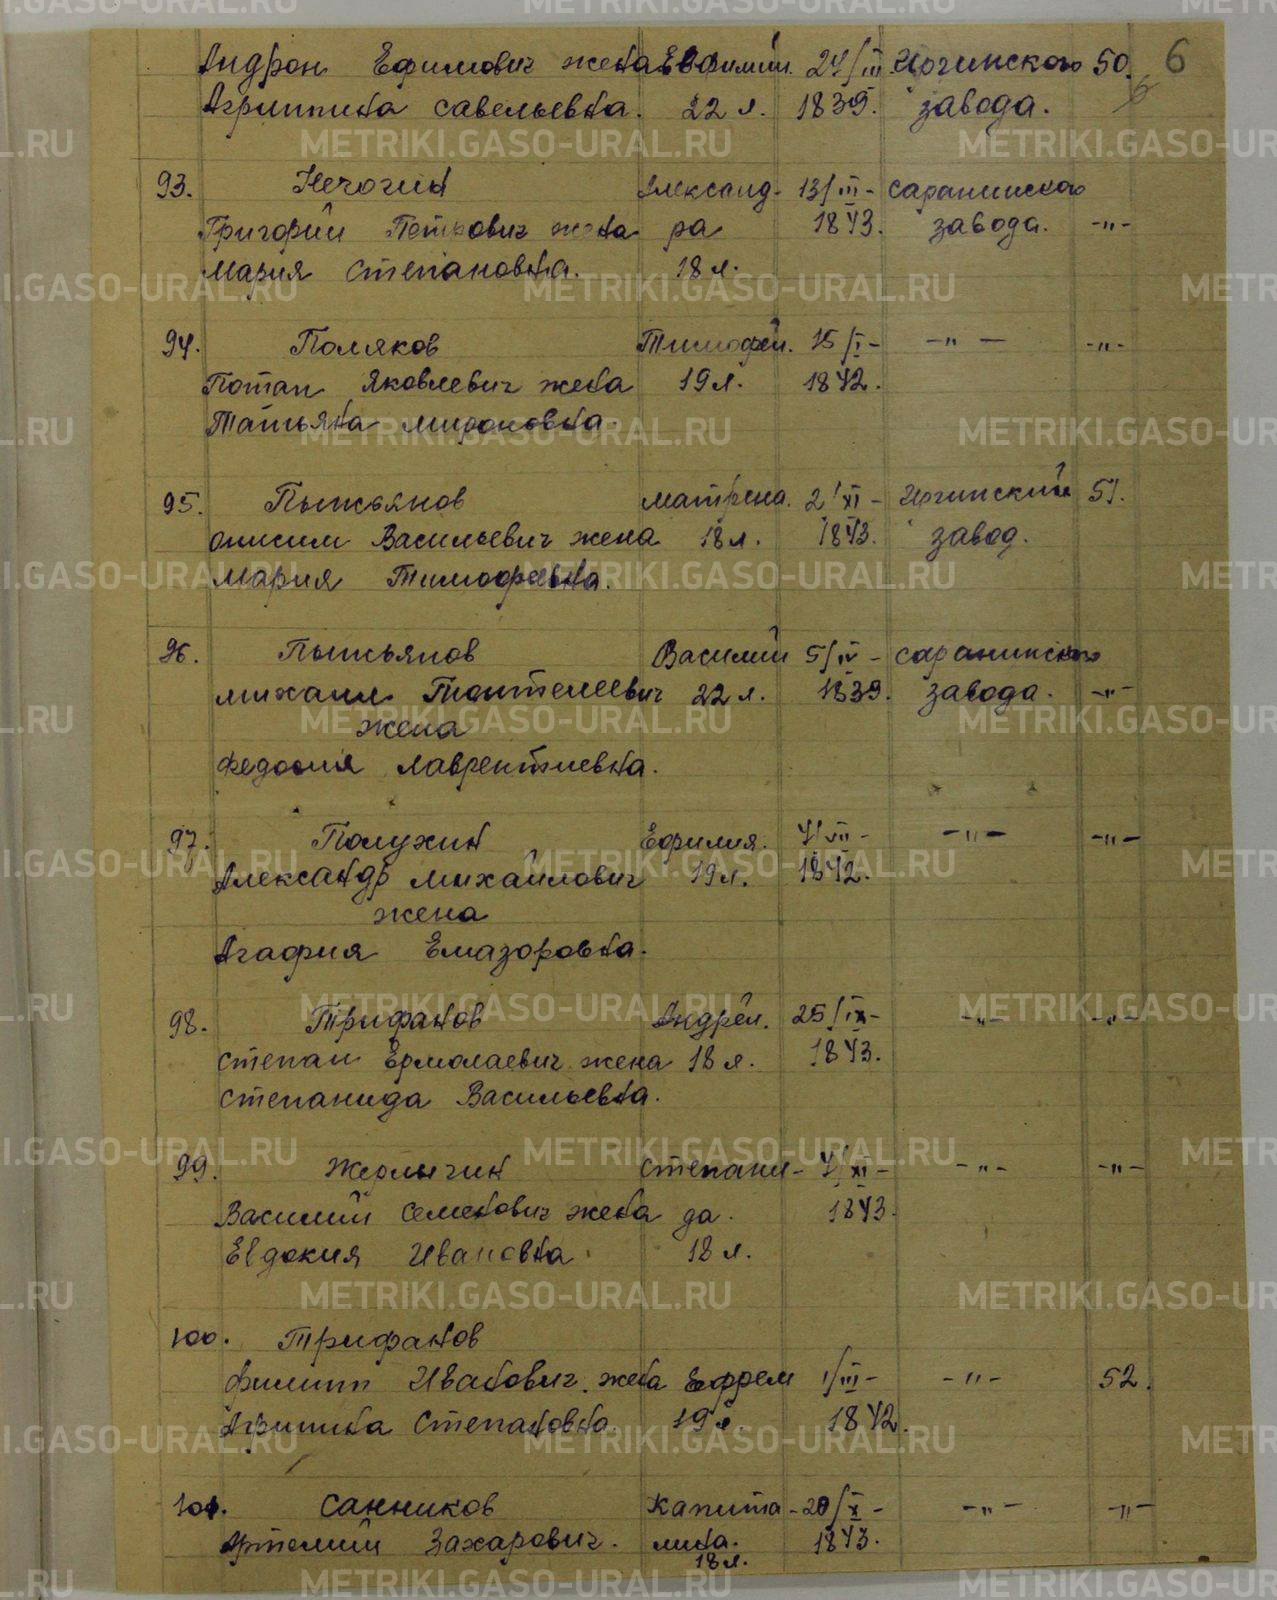 Андрон Ефимович жена Ефимий. 24/III Иргинского 50. 6
Агрипина Савельевна. 22 л. 1839. завода.
93. Нечогин Александ- 13/III- Саранинского
Григорий Петрович жена ра 1843. завода. -"-
Мария Степановна. 18 л.
94. Поляков Тимофей. 15/I- -"- -"-
Потап Яковлевич жена 19 л. 1842.
Татьяна Мироновна.
95. Пыжьянов Матрена. 2/XI- Иргинский 51.
Онисим Васильевич жена 18 л. 1843. завод.
Мария Тимофеевна.
96. Пыжьянов Василий 5/IV- Саранинского
Михаил Пантелеевич 22 л. 1839. завода. -"-
жена
Федосия Лаврентиевна.
97. Полухин Ефимия. 4/VII- -"- -"-
Александр Михайлович 19 л. 1842.
жена
Агафия Емазоровна.
98. Трифанов Андрей. 25/IX- -"- -"-
Степан Ермолаевич жена 18 л. 1843.
Степанида Васильевна.
99. Степани- 4/XI- -"- -"-
Василий Семенович жена да. 1843.
Евдокия Ивановна 18 л.
100. Трифанов
Филипп Иванович. жена Ефрем 1/III- -"- 52.
Агрипина Степановна. 19 л. 1842.
101. Санников Капита- 20/X- -"- -"-
Артемий Захарович. лина. 1843.
18 л.
METRIKI.GASO-URAL.RU